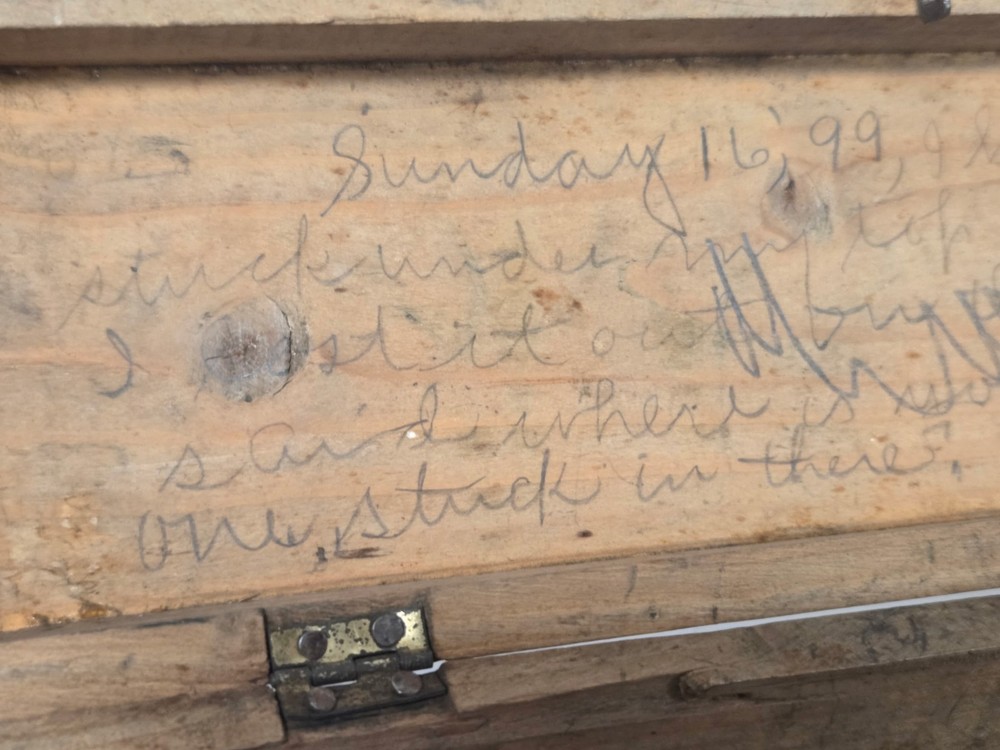 Sunday 16, '99, I
stuck under my top
I st it out
said where is
one, stuck in there?,